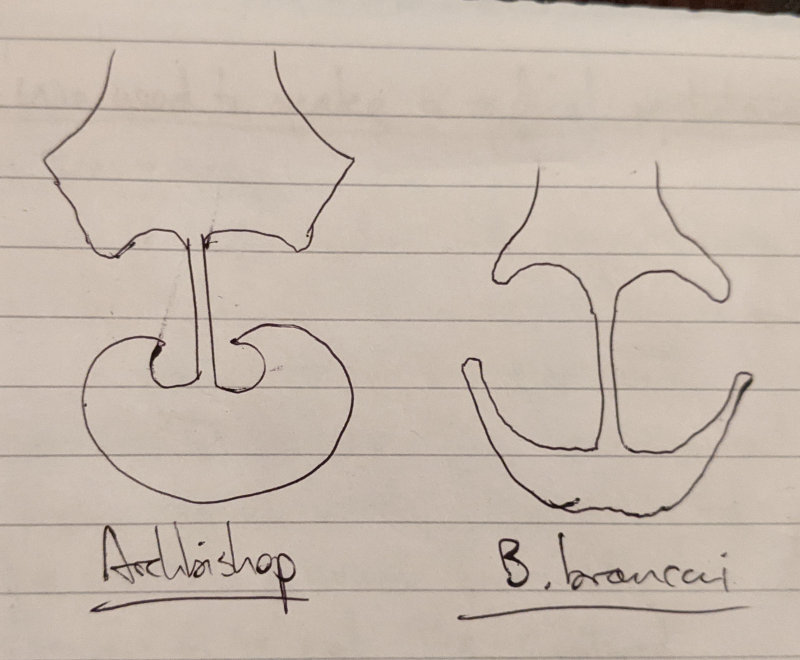 Archbishop
B. brancai